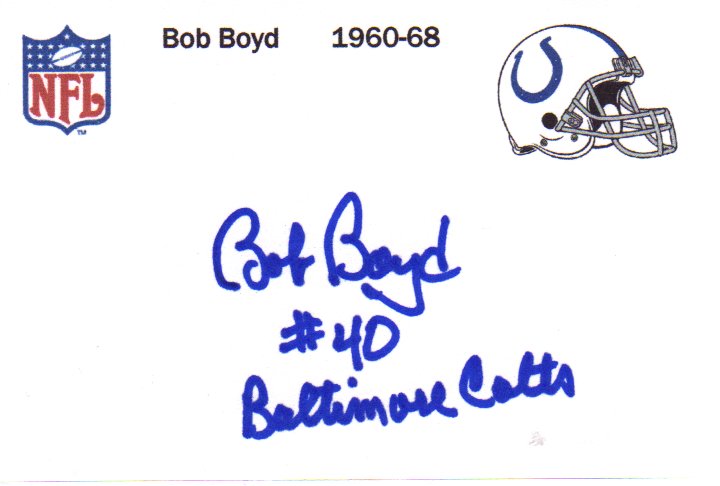 NFL
Bob Boyd 1960-68
Bob Boyd
#40
Baltimore Colts